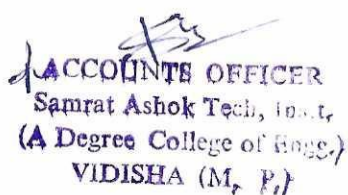 ACCOUNTS OFFICER
Samrat Ashok Tech, Inst,
(A Degree College of Engg.)
VIDISHA (M, P,)